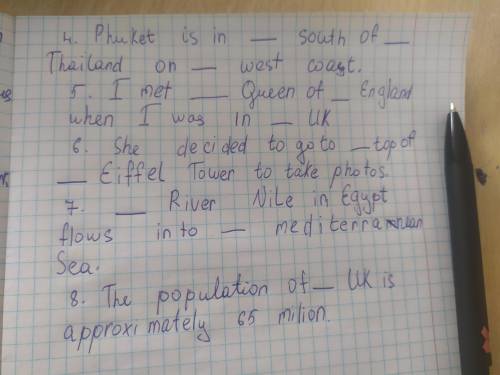 4. Phuket is in __ south of __
Thailand on __ west coast.
5. I met ___ Queen of _ England
when I was in _ UK
6. She decided to go to _ top of
__ Eiffel Tower to take photos.
7. __ River Nile in Egypt
flows in to __ mediterranean
Sea.
8. The population of _ UK is
approxi mately 65 milion.